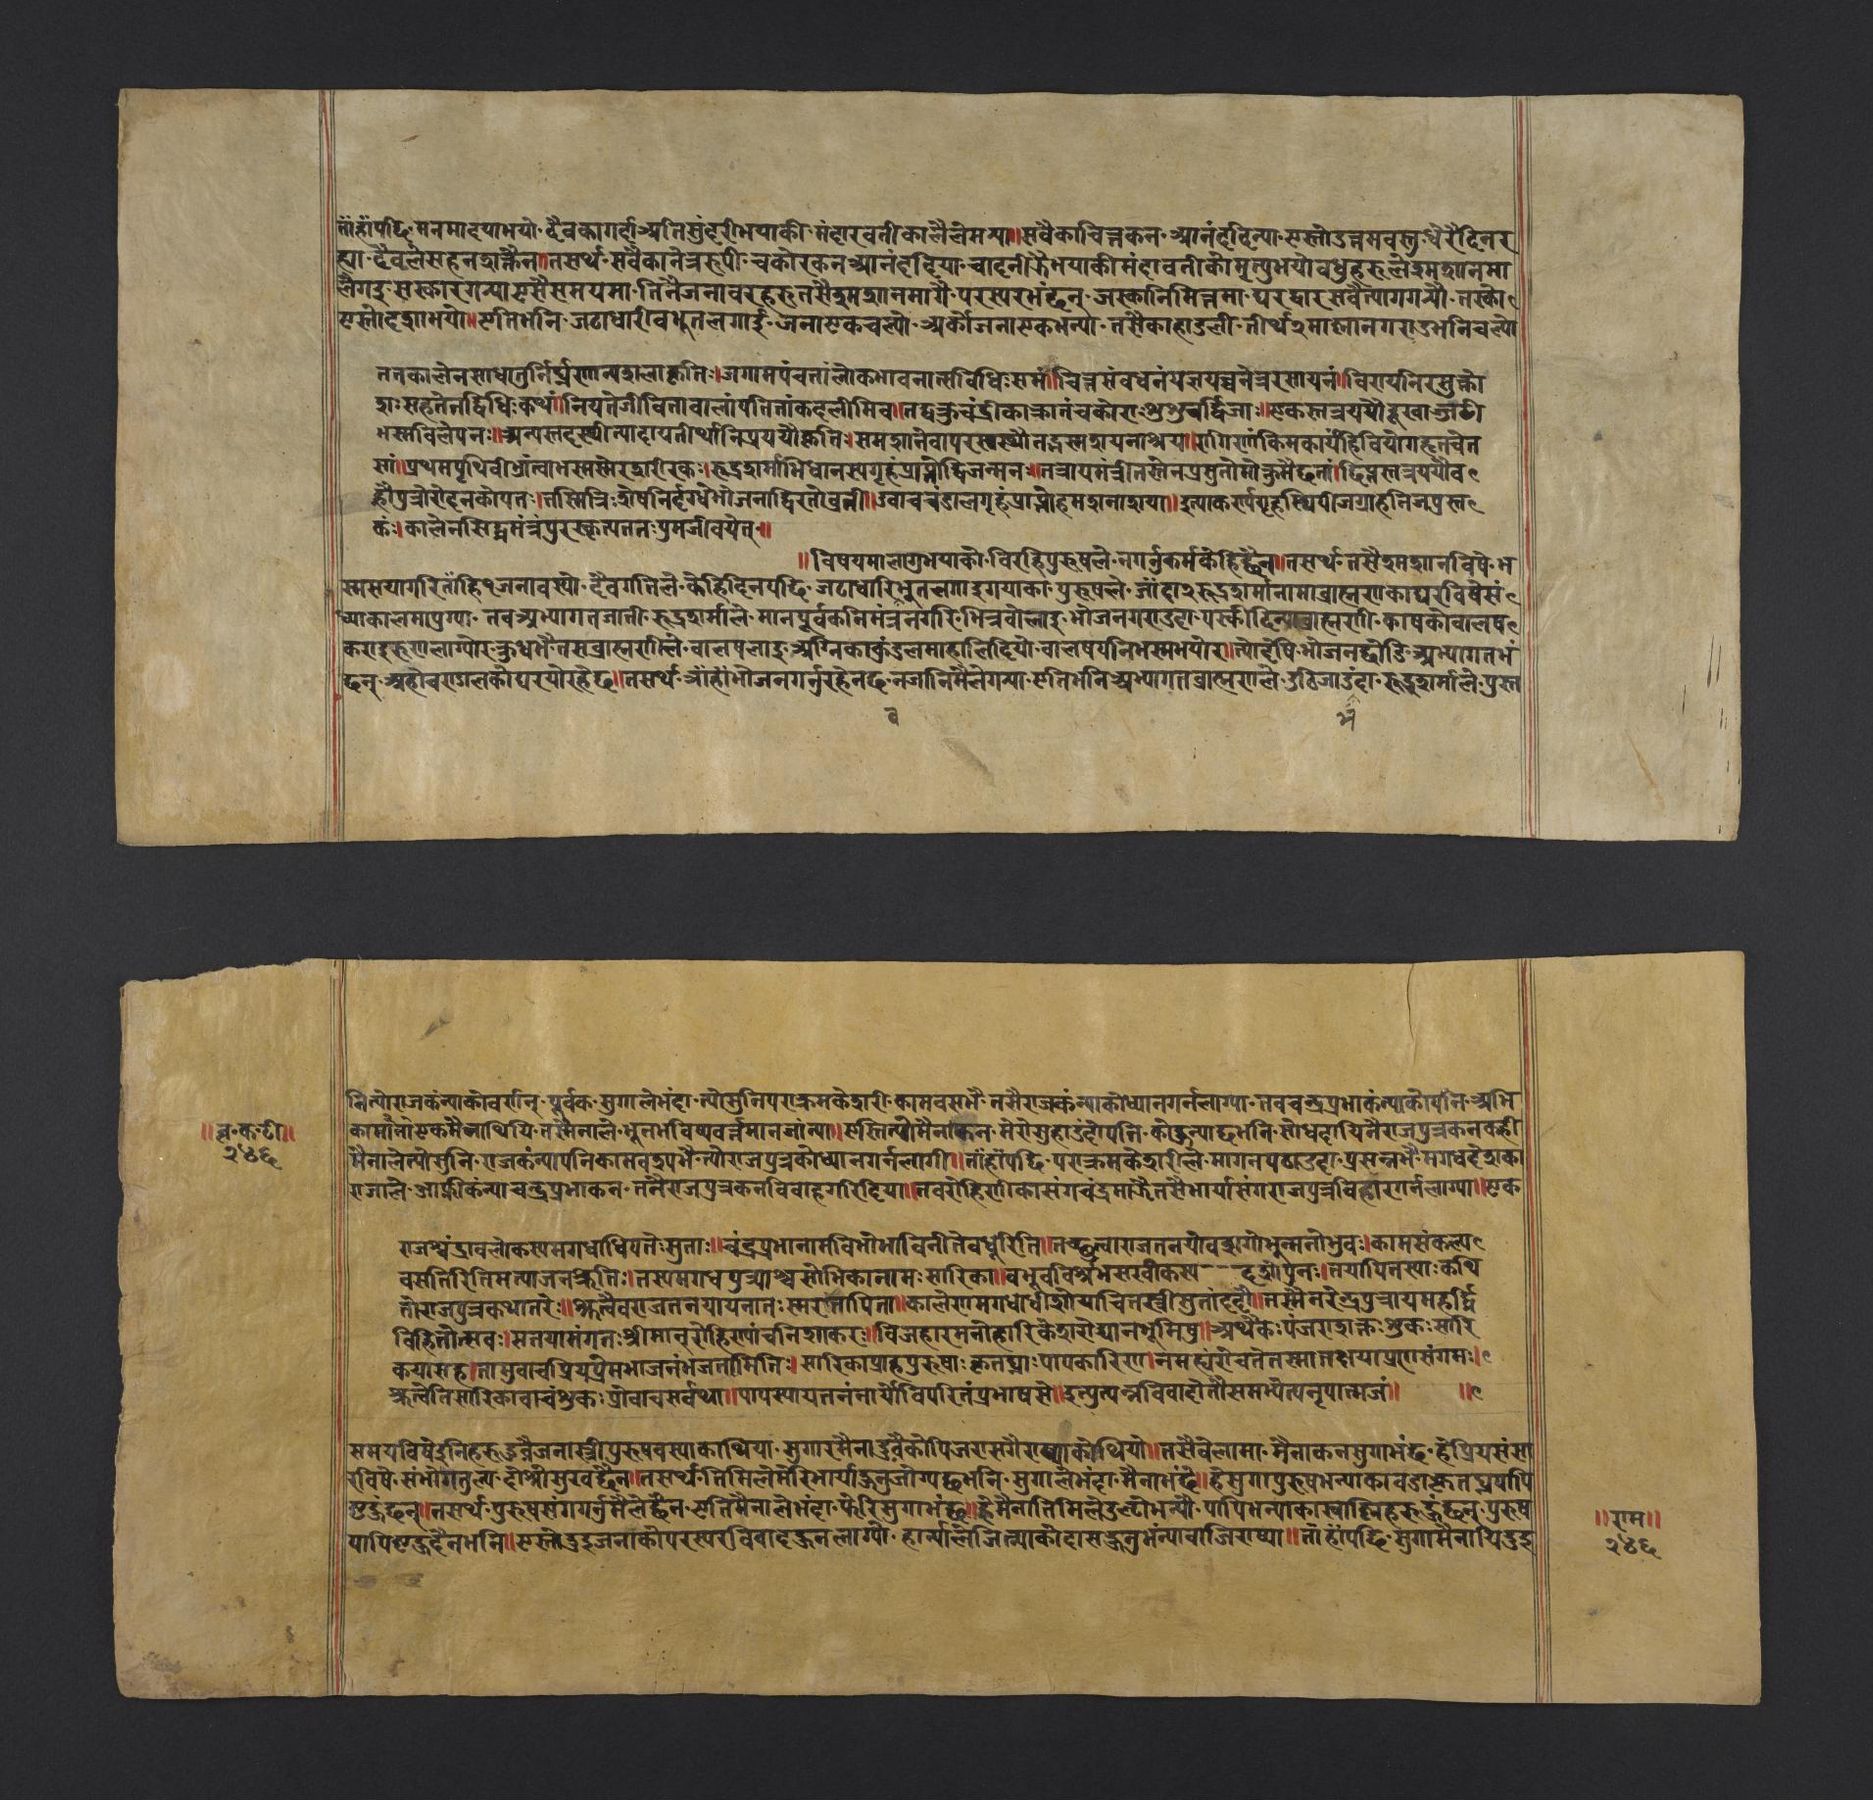 ताँहाँपछि मनमादयाभयो दैवकागर्दा अतिसुंदरीभयाकी मंदारवतीकालैलेमर्या॥ सवैकाचित्तकन आनंददिन्या यस्तोउत्तमवस्तु धेरैदिनर
ह्या दैवलेसहनशक्तैन॥ तसर्थ सवैकानेत्ररूपी चकोरकनआनंददिया चादनीझैभयाकीमंदावतीकोमृत्युभयोवधुहरूलेश्मशानमा
लैगइ सस्कारगर्‍या यसैसमयमा तिनैजनावरहरू तसैश्मशानमागै परस्परभंछन् जस्कानिमित्तमा घरद्वारसवैत्यागगर्‍यौ तस्को
यस्तोदशाभयो॥ यतिभनि जटाधारीवभुतलगाइ जनायकचल्यो अर्कोजनायकभन्यो तसैकाहाडली तीर्थ२मास्नानगराउभनिचल्यो
ततकालेनसाधातुर्निर्घृणान्यशलाकृतिः। जगामपंचतांलोकभावनात्सविधिःसमं। चित्तसंवधनंयत्नयच्चनेत्ररसायनं। विरायनिरसुक्तो
शःसहतेनद्विधिःकथं। नियतेजीवितावालांपतितांकदलीमिव। तद्वक्त्रचंद्रीकाक्रातंचकोराशुशुचर्द्विजाः॥ यकस्तत्रययौदूरवाजटी
भस्मविलेपनः॥ अन्यस्तदस्थीन्यादायतीर्थानिप्रययौकृति। समशानेवापरस्तस्थौतद्भस्मशयनाश्रय। रागिणांकिमकार्यंहिवियोगहृतचेत
सां। प्रथमपृथिवींभ्रांत्वाभस्मस्मेरशरीरकः। रूद्रशर्माभिधानस्यगृहंप्राप्तोद्विजन्मनः॥ तत्रायमंत्रीतस्तेनप्रस्तुतोभोक्तुमैछतां। द्विप्तस्तत्रययौव
ह्नौपुत्रोरोदनकोपत। तस्मित्रिःशेषनिर्दग्धेभोजनाद्विरतोव्रती। उवाचचंडालगृहंप्राप्तोहमशनाशया॥ इत्याकर्ण्यगृहस्थिपीजग्राहनिजपुस्त
कं। कालेनसिद्धमंत्रंपुरस्कृत्यततःपुमजीवयेत्॥
॥ विषयमालागुभयाको विरहिपुरूषले नगर्नुकर्मकेहिछैन॥ तसर्थ तसैश्मशानविषे भ
स्मसयागरितांहि१जनावस्यो दैवगतिले केहिदिनपछि जटाधारिभुतलगाइगयाका पुरूषले जांदा२रूद्रशर्मानामाव्राह्मणकाघरविषेसं
ध्याकालमापुग्या तव अभ्यागतजानी रूद्रशर्माले मानपूर्वकनिमंत्रनगरि भित्रवोलाइ भोजनगराउदा यस्कीदिन्याव्राह्मणी काषकोवालष
कराइरूनलाग्योर क्रुधभै तसव्राह्मणीले वालषलाइ अग्निकाकुंडलमाहालिदियो वालषयनिभस्मभयोर॥ त्योदेषि भोजनछोडि अभ्यागतभं
छन् अहोचराडालकोघरयोरहेछ॥ तसर्थ आँहाँभोजनगर्नुरहेनछ नजानिमैलेगर्‍या यतिभनिअभ्यागतव्राह्मणले उठिजाउंदा रूद्रशर्माले पुस्त
व
भं
नित्योराजकंन्याकोवर्णन् पूर्वक सुगालेभंदा त्योसुनिपराक्रमकेशरी कामवसभै तसैराजकंन्याकोध्यानगर्नलाग्या तवचन्द्रप्रभाकंन्याकोपनि अभि
॥व्र॰क॰टी॥
२४६
कामांनोंयकमैनाथियि तसमैनाले भूतभविष्यवर्त्तमानजांन्या॥ यस्तित्योमैनाकन मेरोसुहाउंदोपति कोहुन्याछभनि सोधदायिनैराजपुत्रकनवर्ही
मैनालेत्योसुनि राजकंन्यापनिकामवशभै त्योराजपुत्रकोध्यानगर्नलागी॥ ताँहाँपछि पराक्रमकेशरीले मागनपठाउदा प्रसन्नभै मगधदेशका
राजाले आफ्नीकंन्याचन्द्रप्रभाकन तनैराजपुत्रकनविवाहगरिदिया॥ तवरोहिणीकासंगचंद्रमाझैतसैभार्यासंगराजपुत्रविहारगर्नलाग्या॥ यक
राजश्चंद्रावलोकस्यमगधाधिपतेःसुताः॥ चंद्रप्रभानामविभोभाविनीतेवधूरिति। तच्छ्रुत्वाराजतनयोवशगोभुन्मनोभुवः। कामसंकल्प
वसतिरितिमत्याजनकृतिः। तस्यमगधपुत्र्याश्चसोभिकानामःसारिका। वभुवविश्रंभसखीकस्य -- दशोपुनः। तयापितस्याःकथि
तोराजपुत्रकथातरे॥ श्रुत्वैवराजतनयायनातःस्मरतापिता॥ कालेणमगधाधीशोयाचितस्त्रीसुतांददौ॥ तस्मैनरेन्द्रपुत्रायमहर्द्धि
विहितोत्सव। सतयासंगतःश्रीमान्रोहिण्यांचनिशाकरः॥ विजहारमनोहारिकेशरोद्यानभूमिषु॥ अथैकःपंजराशक्तःशुकःसारि
कयासह। तामुवाचप्रियप्रेमभाजनंभजतांमिति। सारिकाप्राहपुरूषाःकृतघ्नाःपापकारिण। नमह्यंरोचतेतस्मातक्षयाप्राणसंगमः।
श्रुत्वेतिसारिकावाचंशुकःप्रोवाचसर्वथा॥ पापस्यायतनंनार्योविपरितंप्रभाषसे॥ इत्युत्पन्नविवादोतौसमभ्येत्यनृपात्मजं॥ ॥
समयविषेइनिहरूदुवैजनास्त्रीपुरूषवस्याकाथिया सुगारमैनादुवैकोपिजरासगैराख्याकोथियो॥ तसैवेलामा मैनाकनसुगाभंछ हेप्रियसंसा
रविषे संभोगतुल्य दोश्रोसुरवछैन॥ तसर्थ तिमिलेमेरिभार्याहुनुजोग्यछभनि सुगालेभंदा मैनाभंछे॥ हेसुगापुरूषभन्याकावडाकृतघ्नपापि
हुदछन्॥ तसर्थ पुरूषसंगगर्नुमैलेछैन यतिमैनालेभंदा फेरिसुगाभंछ॥ हेमैनातिमिलेउल्टोभन्यौ पापिभन्याकास्वास्निहरूहुंछन् पुरूष
॥राम॥
२४६
पापिहुदैनभनि॥ यस्तोदुइजनाकोपरस्परविवादहुनलाग्यो हार्न्यालेजित्न्याकोदासहुनुभंन्यावाजिराष्या॥ ताँहाँपछि सुगामैनायिदुइ